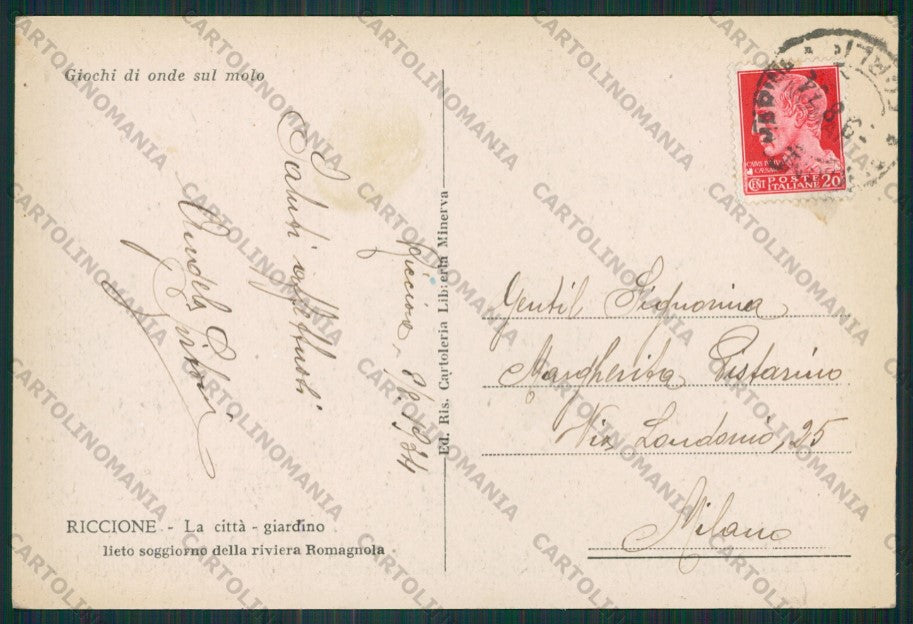 Giochi di onde sul molo
Saluti affettuosi
Riccione, 8/8/1934
Ed. Ris. Cartoleria Libreria Minerva
RICCIONE - La città - giardino
lieto soggiorno della riviera Romagnola
POSTE
CENT ITALIANE 20
FORLI
Gentil Signorina
Margherita Pistarino
Via Londonio, 25
Milano
CARTOLINOMANIA